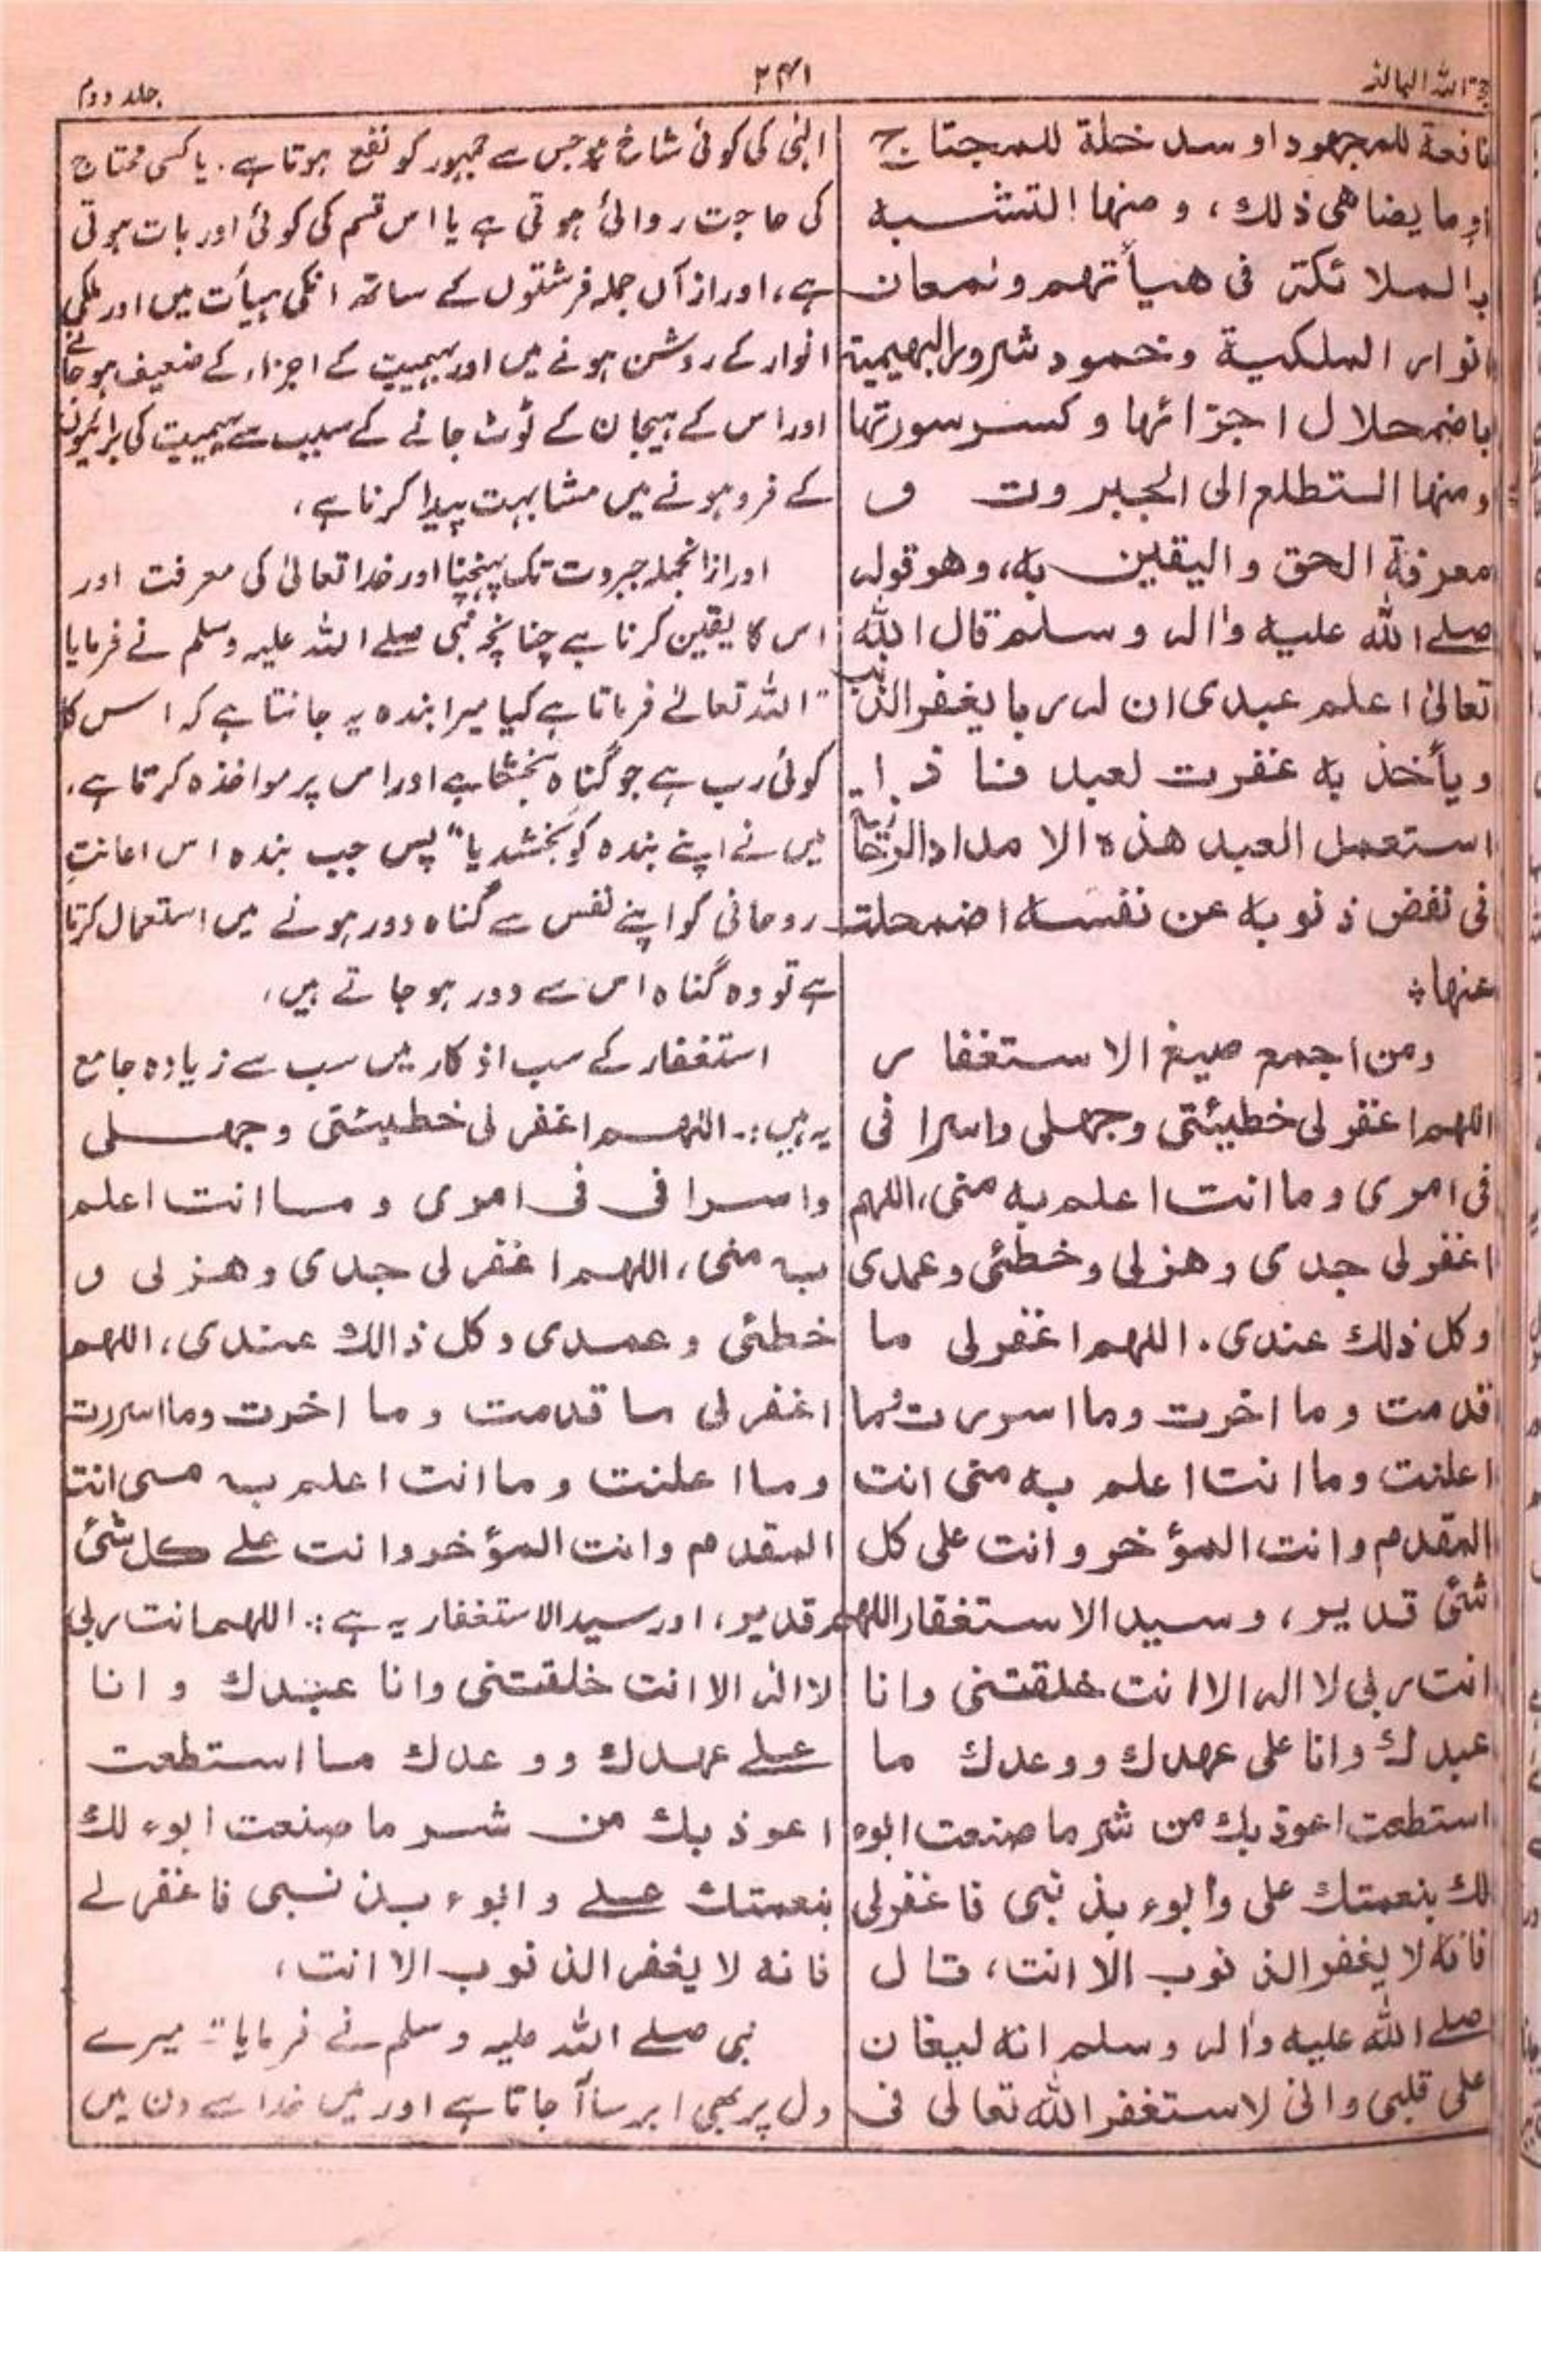 حجۃ اللہ البالغہ
۲۴۱
جلد دوم
نافعة للمجهود او سد خلة للمحتاج
او ما يضاهى ذلك، ومنها التشبه
بالملائكة فى هيأتهم ولمعان
انوار الملكية وخمود شرور البهيمية
باضمحلال اجزائها وكسر سورتها
ومنها التطلع الى الجبروت و
معرفة الحق واليقين به، وهو قوله
صلى الله عليه واله وسلم قال الله
تعالى اعلم عبدى ان له ربا يغفر الذنب
ويأخذ به غفرت لعبدى فاذا
استعمل العبد هذه الامدادالروحانية
فى نفض ذنوبه عن نفسه اضمحلت
عنها؞
ومن اجمع صيغ الاستغفار
اللهم اغفر لى خطيئتى وجهلى واسرافى
فى امرى وما انت اعلم به منى، اللهم
اغفر لى جدى وهزلى وخطئى وعمدى
وكل ذلك عندى. اللهم اغفر لى ما
قدمت وما اخرت وما اسررت وما
اعلنت وما انت اعلم به منى انت
المقدم وانت المؤخر وانت على كل
شئ قدير، وسيد الاستغفار اللهم
انت ربى لا اله الا انت خلقتنى وانا
عبدك وانا على عهدك ووعدك ما
استطعت اعوذ بك من شر ما صنعت ابوء
لك بنعمتك على وأبوء بذنبى فاغفر لى
فانه لا يغفر الذنوب الا انت، قال
صلى الله عليه واله وسلم انه ليغان
على قلبى وانى لاستغفر الله تعالى فى
الٰہی کی کوئی شاخ ہو جس سے جمہور کو نفع ہوتا ہے۔ یا کسی محتاج
کی حاجت روائی ہوتی ہے یا اس قسم کی کوئی اور بات ہوتی
ہے، اور از آں جملہ فرشتوں کے ساتھ انکی ہیأت میں اور ملکی
انوار کے روشن ہونے میں اور بہیمیت کے اجزاء کے ضعیف ہو جانے
اور اس کے ہیجان کے ٹوٹ جانے کے سبب سے بہیمیت کی برائیوں
کے فرو ہونے میں مشابہت پیدا کرنا ہے،
اور از انجملہ جبروت تک پہنچنا اور خدا تعالیٰ کی معرفت اور
اس کا یقین کرنا ہے چنانچہ نبی صلے اللہ علیہ وسلم نے فرمایا
"اللہ تعالےٰ فرماتا ہے کیا میرا بندہ یہ جانتا ہے کہ اس کا
کوئی رب ہے جو گناہ بخشتا ہے اور اس پر مواخذہ کرتا ہے،
میں نے اپنے بندہ کو بخشدیا" پس جب بندہ اس اعانتِ
روحانی کو اپنے نفس سے گناہ دور ہونے میں استعمال کرتا
ہے تو وہ گناہ اس سے دور ہو جاتے ہیں،
استغفار کے سب اذکار میں سب سے زیادہ جامع
یہ ہیں:۔ اللهم اغفر لى خطيئتى وجهلى
واسرافى فى امرى وما انت اعلم
به منى، اللهم اغفر لى جدى وهزلى و
خطئى وعمدى وكل ذالك عندى، اللهم
اغفر لى ما قدمت وما اخرت وما اسررت
وما اعلنت وما انت اعلم به منى انت
المقدم وانت المؤخر وانت علے كل شئ
قدير، اور سید الاستغفار یہ ہے:۔ اللهم انت ربى
لا اله الا انت خلقتنى وانا عبدك وانا
علے عهدك ووعدك ما استطعت
اعوذ بك من شر ما صنعت ابوء لك
بنعمتك علے وابوء بذنبى فاغفر لے
فانه لا يغفر الذنوب الا انت،
نبی صلے اللہ علیہ وسلم نے فرمایا "میرے
دل پر بھی ابر سا آ جاتا ہے اور میں خدا سے دن میں